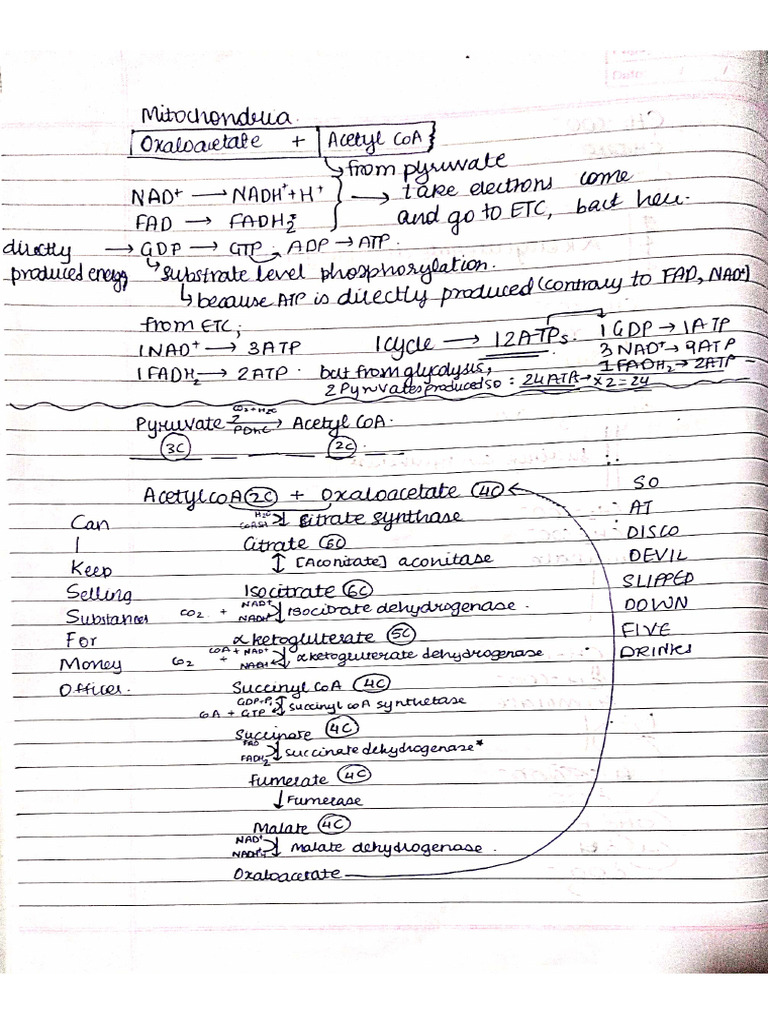 Mitochondria.
Oxaloacetate + Acetyl CoA }
↳ from pyruvate
NAD⁺ → NADH⁺ + H⁺ } → take electrons come
FAD → FADH₂ and go to ETC, but here.
directly → GDP → GTP . ADP → ATP.
produced energy ↳ substrate level phosphorylation.
↳ because ATP is directly produced (contrary to FAD, NAD⁺)
from ETC;
1 NAD⁺ → 3 ATP 1 cycle → 12 ATPs. 1 GDP → 1 ATP
3 NAD⁺ → 9 ATP
1 FADH₂ → 2 ATP . but from glycolysis, 1 FADH₂ → 2 ATP
2 Pyruvates produced so : 24 ATPs → x 2 = 24
Pyruvate → PDHC Acetyl CoA.
3C 2C
Acetyl CoA 2C + Oxaloacetate 4C
H₂O CoASH ↓ Citrate synthase
Citrate
↕ [Aconitate] aconitase
Isocitrate 6C
CO₂ + NAD⁺ NADH ↓ isocitrate dehydrogenase .
α ketogluterate 5C
CO₂ + CoA + NAD⁺ NADH ↓ α ketogluterate dehydrogenase
Succinyl CoA 4C
GDP+Pi CoA + GTP ↕ succinyl coA synthetase
Succinate 4C
FAD FADH₂ ↓ succinate dehydrogenase*
Fumerate 4C
↓ Fumerase
Malate 4C
NAD⁺ NADH ↓ malate dehydrogenase .
Oxaloacetate
Can
I
Keep
Selling
Substances
For
Money
Officer.
SO
AT
DISCO
DEVIL
SLIPPED
DOWN
FIVE
DRINKS